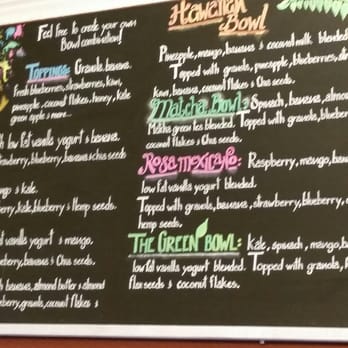 Feel free to create your own
Bowl combination!
Toppings: Granola, banana,
Fresh blueberries, strawberries, kiwi,
pineapple, coconut flakes, honey, kale
green apple & more...
low fat vanilla yogurt & banana.
strawberry, blueberry, banana & chia seeds
& kale.
kale, blueberry & hemp seeds.
vanilla yogurt & mango.
banana & Chia seeds.
banana, almond butter & almond
granola, coconut flakes &
Hawaiian
Bowl
Pineapple, mango, banana & coconut milk blended.
Topped with granola, pineapple, blueberries,
kiwi, banana, coconut flakes & Chia seeds.
Matcha Bowl: Spinach, banana, almond
Matcha green tea blended. Topped with granola, blueberry
coconut flakes & Chia seeds.
Rosa Mexicano: Raspberry, mango,
low fat vanilla yogurt blended.
Topped with granola, banana, strawberry, blueberry,
hemp seeds.
The Green Bowl: Kale, spinach, mango,
low fat vanilla yogurt blended. Topped with granola,
flax seeds & coconut flakes.